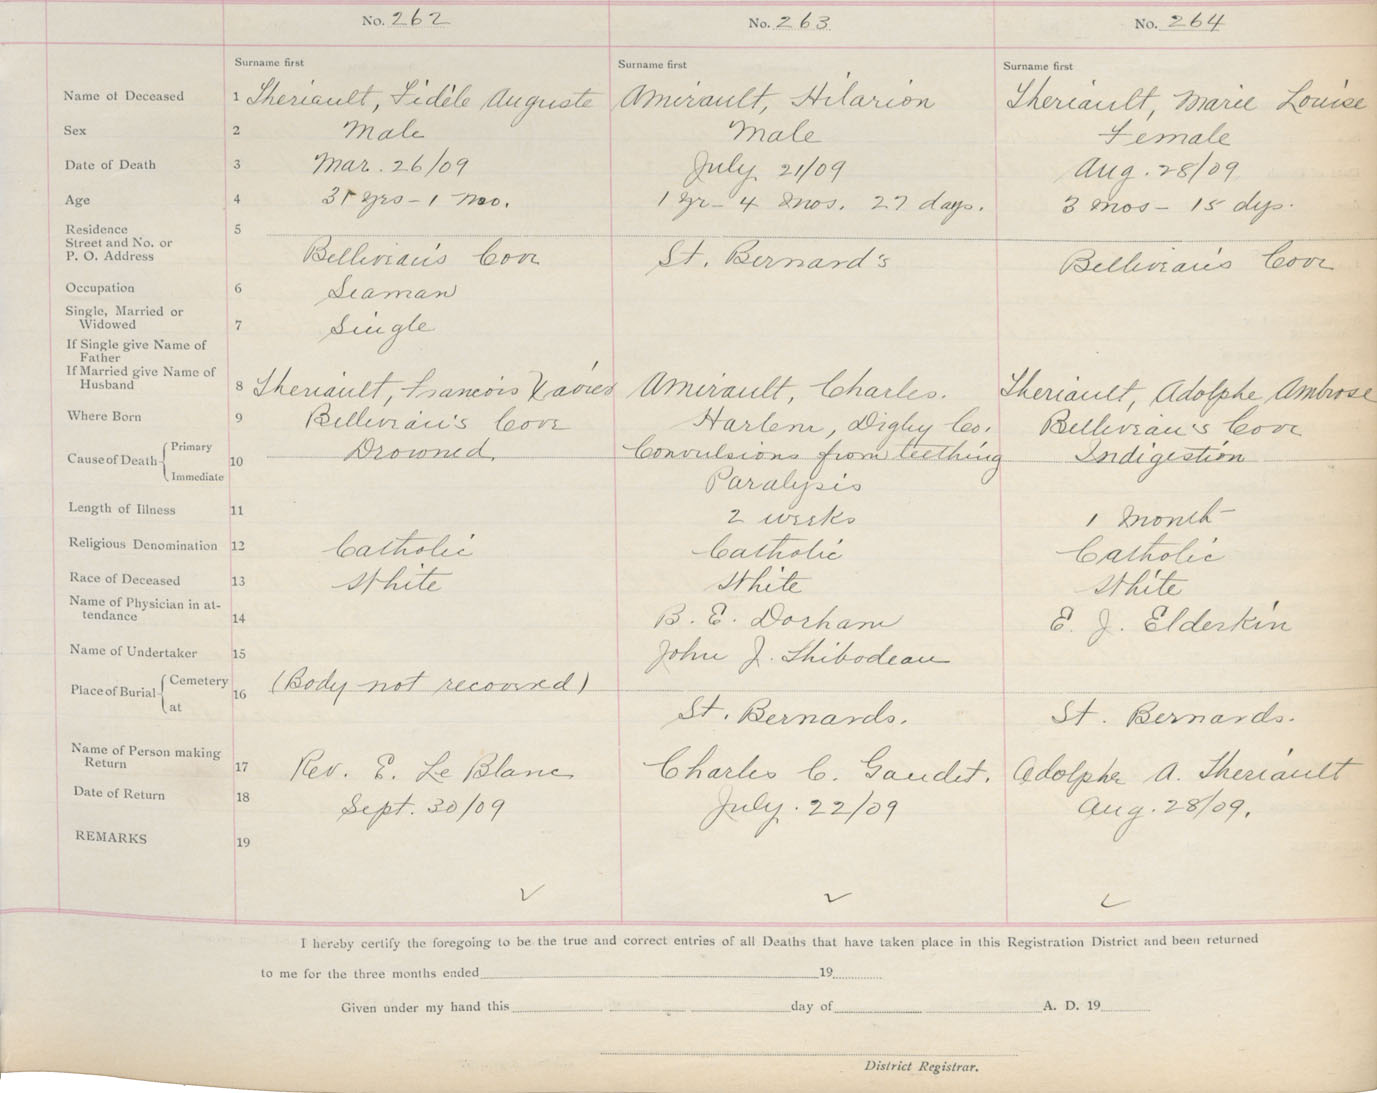 No. 262 No. 263 No. 264
Surname first Surname first Surname first
Name of Deceased 1 Theriault, Fidèle Auguste Amirault, Hilarion Theriault, Marie Louise
Sex 2 Male Male Female
Date of Death 3 Mar. 26/09 July 21/09 Aug. 28/09
Age 4 31 yrs - 1 mo. 1 yr - 4 mos. 27 days. 3 mos - 15 dys.
Residence 5
Street and No. or
P. O. Address Belliveau's Cove St. Bernard's Belliveau's Cove
Occupation 6 Seaman
Single, Married or
Widowed 7 Single
If Single give Name of
Father
If Married give Name of
Husband 8 Theriault, Francois Xavier Amirault, Charles. Theriault, Adolphe Ambrose
Where Born 9 Belliveau's Cove Harlem, Digby Co. Belliveau's Cove
Cause of Death Primary 10 Drowned. Convulsions from teething Indigestion
Immediate Paralysis
Length of Illness 11 2 weeks 1 month
Religious Denomination 12 Catholic Catholic Catholic
Race of Deceased 13 White White White
Name of Physician in at-
tendance 14 B. E. Dorham E. J. Elderkin
Name of Undertaker 15 John J. Thibodeau
Place of Burial Cemetery 16 (Body not recovered)
at St. Bernards. St. Bernards.
Name of Person making
Return 17 Rev. E. Le Blanc Charles C. Gaudet. Adolphe A. Theriault
Date of Return 18 Sept. 30/09 July. 22/09 Aug. 28/09.
REMARKS 19
I hereby certify the foregoing to be the true and correct entries of all Deaths that have taken place in this Registration District and been returned
to me for the three months ended 19
Given under my hand this day of A. D. 19
District Registrar.